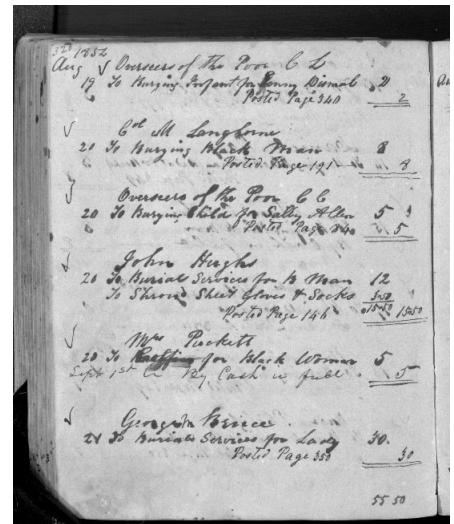 320 1852
Aug √ Overseers of the Poor C L
19 To Burying Infant for Fenny Dismal 2
Posted Page 340 2
√ Col M Langhorne
20 To Burying Black Man 8
Posted Page 191 8
√ Overseers of the Poor C C
20 To Burying Child for Sally Allen 5
Posted Page 340 5
√ John Hughs
20 To Burial Services for B Man 12
To Shroud Sheet Gloves & Socks 3.50
15.50
Posted Page 146 15.50
√ Mrs Puckett
20 To Coffin for Black Woman 5
Sept 1st Cr By Cash in full 5
√ George Bruce
21 To Burial Services for Lady 30.
Posted Page 350 30
55 50